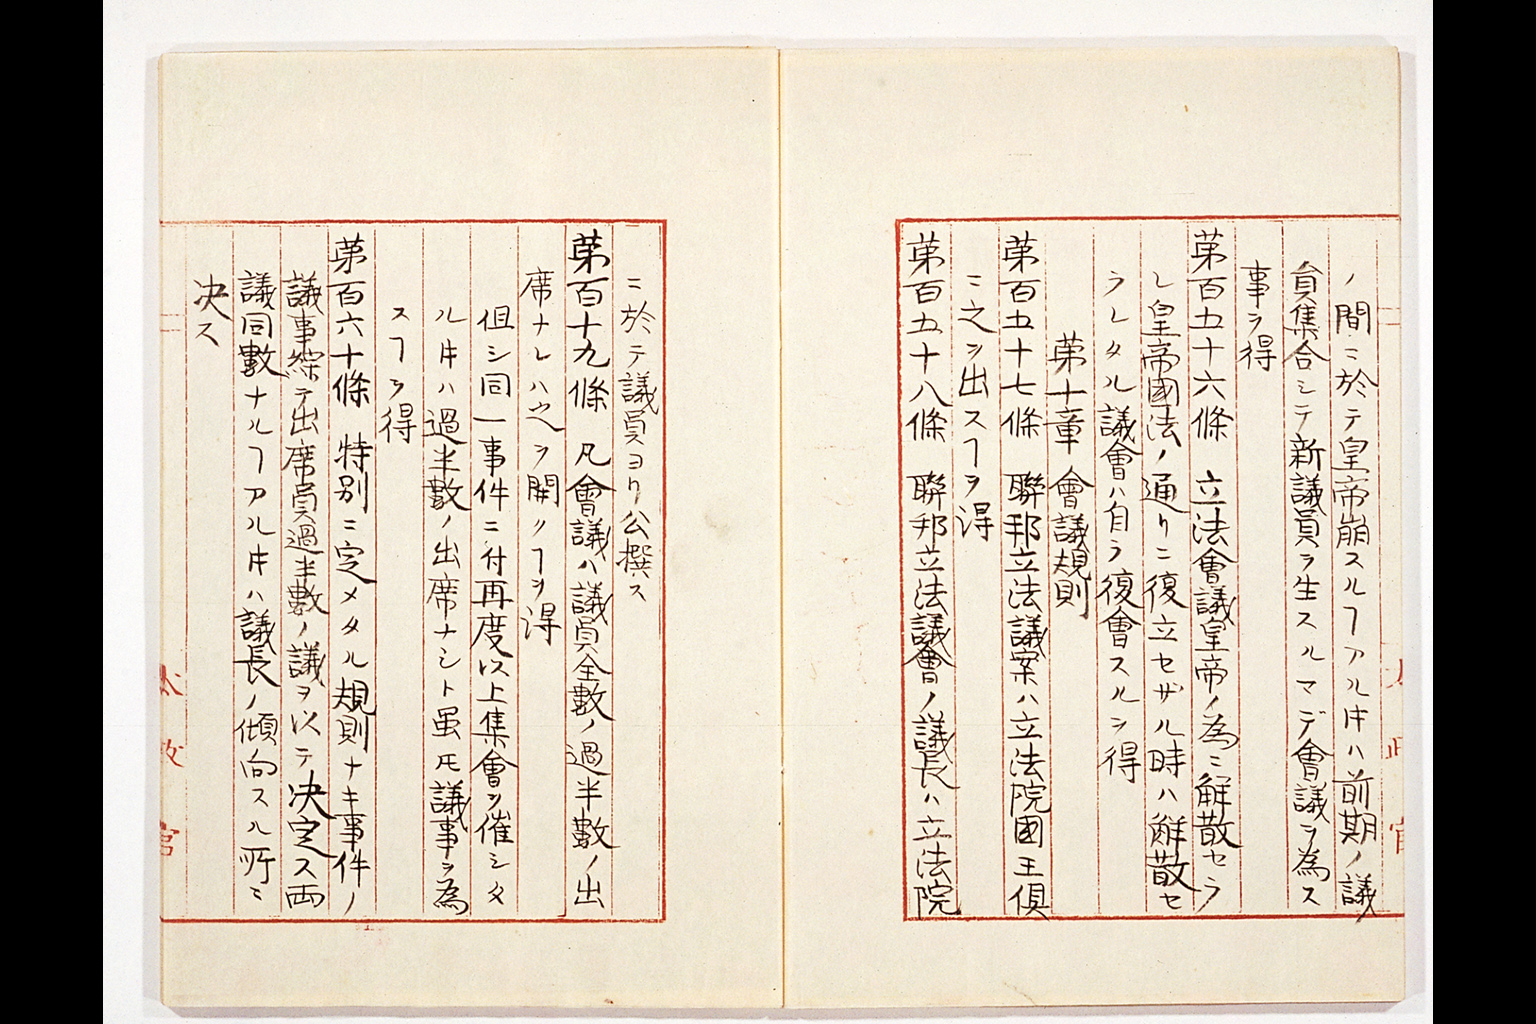 ノ間ニ於テ皇帝崩スルヿアル𪜈ハ前期ノ議
員集合シテ新議員ヲ生スルマデ會議ヲ為ス
事ヲ得
苐百五十六條　立法會議皇帝ノ為ニ解散セラ
レ皇帝國法ノ通リニ復立セザル時ハ解散セ
ラレタル議會ハ自ラ復會スルヲ得
苐十章　會議規則
苐百五十七條　聯邦立法議案ハ立法院國王俱
ニ之ヲ出スヿヲ得
苐百五十八條　聯邦立法議會ノ議長ハ立法院
ニ於テ議員ヨリ公撰ス
苐百十九條　凡會議ハ議員全數ノ過半數ノ出
席ナレハ之ヲ開クヿヲ得
但シ同一事件ニ付再度以上集會ヲ催シタ
ル𪜈ハ過半數ノ出席ナシト虽𪜈議事ヲ為
スヿヲ得
苐百六十條　特別ニ定メタル規則ナキ事件ノ
議事綜テ出席員過半數ノ議ヲ以テ决定ス両
議同數ナルヿアル𪜈ハ議長ノ傾向スル所ニ
决ス
太政官